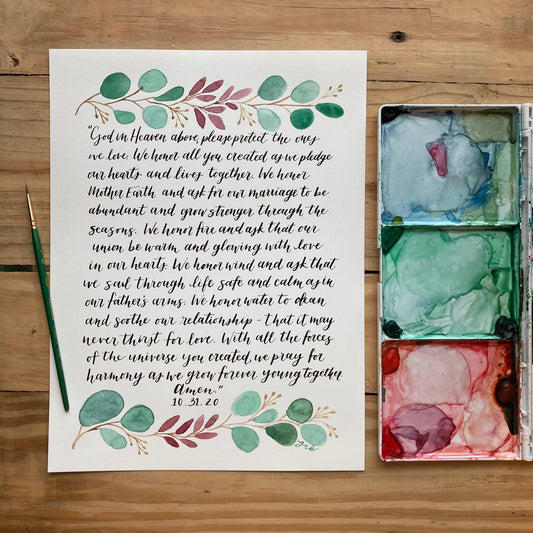 "God in Heaven above, please protect the ones
we love. We honor all you created as we pledge
our hearts and lives together. We honor
Mother Earth and ask for our marriage to be
abundant and grow stronger through the
seasons. We honor fire and ask that our
union be warm and glowing with love
in our hearts. We honor wind and ask that
we sail through life safe and calm as in
our father's arms. We honor water to clean
and soothe our relationship - that it may
never thirst for love. With all the forces
of the universe you created, we pray for
harmony as we grow forever young together.
Amen."
10.31.20